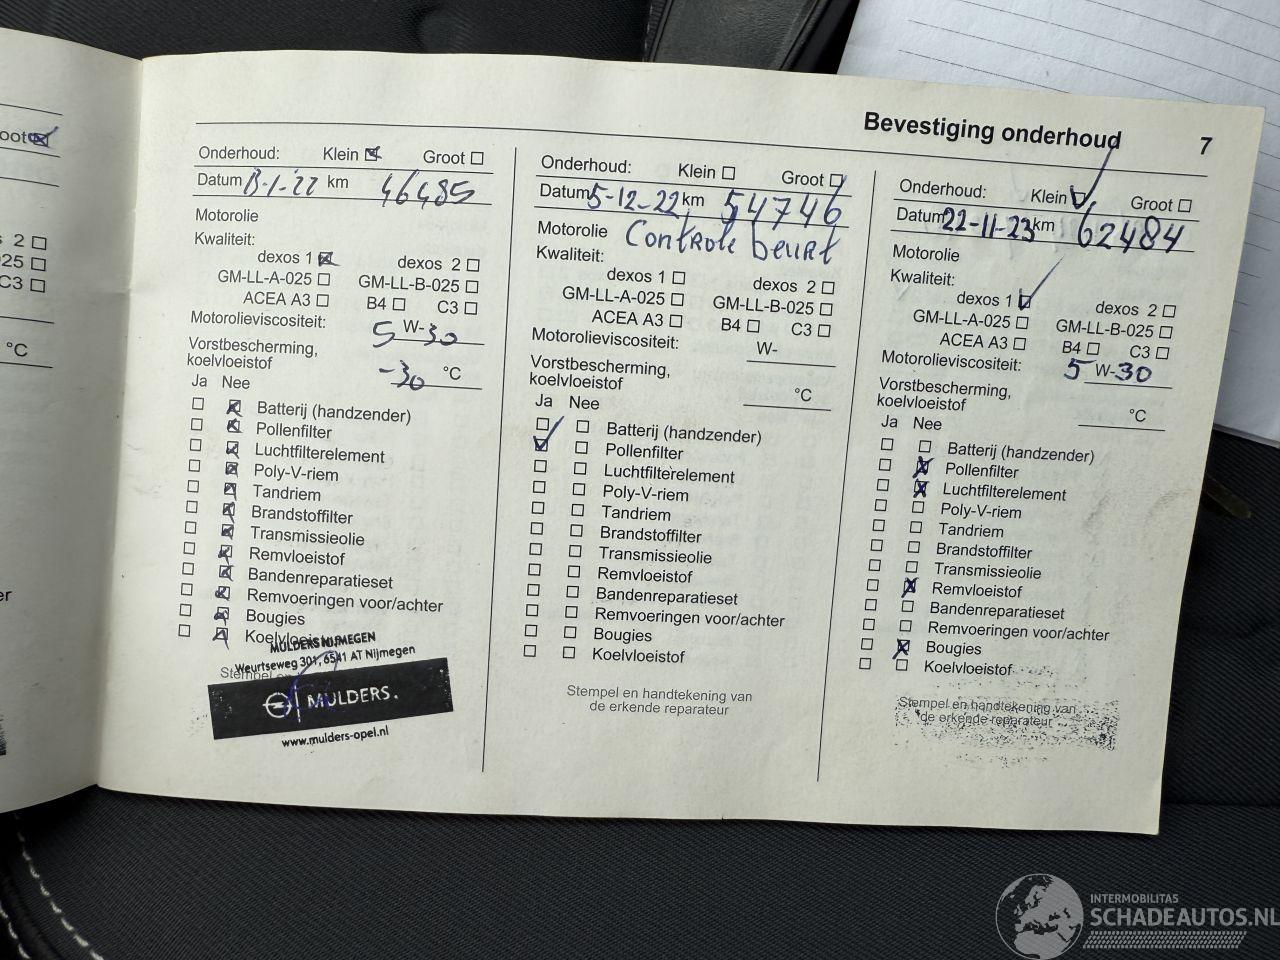 Bevestiging onderhoud 7
oot
s 2
025
C3
°C
er
Onderhoud: Klein Groot
Datum km 46485
Motorolie
Kwaliteit:
dexos 1 dexos 2
GM-LL-A-025 GM-LL-B-025
ACEA A3 B4 C3
Motorolieviscositeit: 5 W-30
Vorstbescherming,
koelvloeistof -30 °C
Ja Nee
Batterij (handzender)
Pollenfilter
Luchtfilterelement
Poly-V-riem
Tandriem
Brandstoffilter
Transmissieolie
Remvloeistof
Bandenreparatieset
Remvoeringen voor/achter
Bougies
Koelvloeistof
MULDERS NIJMEGEN
Weurtseweg 301, 6541 AT Nijmegen
Stempel en
MULDERS.
www.mulders-opel.nl
Onderhoud: Klein Groot
Datum 5-12-22 km 54746
Motorolie Controle beurt
Kwaliteit:
dexos 1 dexos 2
GM-LL-A-025 GM-LL-B-025
ACEA A3 B4 C3
Motorolieviscositeit: W-
Vorstbescherming,
koelvloeistof °C
Ja Nee
Batterij (handzender)
Pollenfilter
Luchtfilterelement
Poly-V-riem
Tandriem
Brandstoffilter
Transmissieolie
Remvloeistof
Bandenreparatieset
Remvoeringen voor/achter
Bougies
Koelvloeistof
Stempel en handtekening van
de erkende reparateur
Onderhoud: Klein Groot
Datum 22-11-23 km 62484
Motorolie
Kwaliteit:
dexos 1 dexos 2
GM-LL-A-025 GM-LL-B-025
ACEA A3 B4 C3
Motorolieviscositeit: 5 W-30
Vorstbescherming,
koelvloeistof °C
Ja Nee
Batterij (handzender)
Pollenfilter
Luchtfilterelement
Poly-V-riem
Tandriem
Brandstoffilter
Transmissieolie
Remvloeistof
Bandenreparatieset
Remvoeringen voor/achter
Bougies
Koelvloeistof
Stempel en handtekening van
de erkende reparateur
INTERMOBILITAS
SCHADEAUTOS.NL